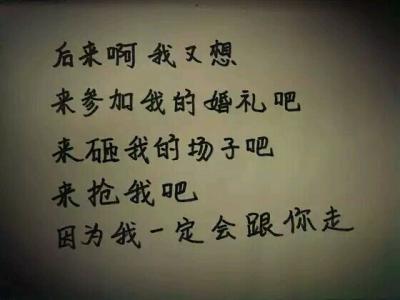 后来啊我又想
来参加我的婚礼吧
来砸我的场子吧
来抢我吧
因为我一定会跟你走